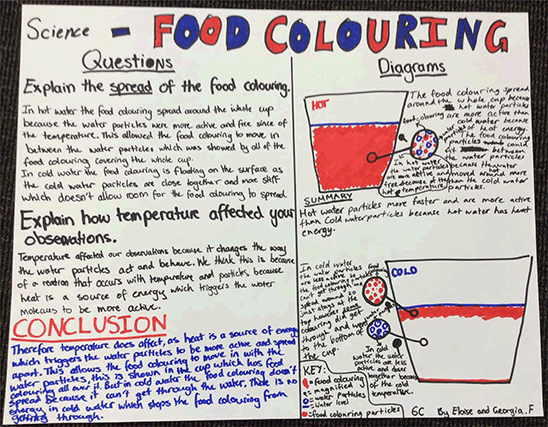 Science - FOOD COLOURING
Questions
Explain the spread of the food colouring.
In hot water the food colouring spread around the whole cup
because the water particles were more active and free since of
the temperature. This allowed the food colouring to move in
between the water particles which was showed by all of the
food colouring covering the whole cup.
In cold water the food colouring is floating on the surface as
the cold water particles are close together and more stiff
which doesn't allow room for the food colouring to spread.
Explain how temperature affected your
observations.
Temperature affected our observations because it changes the way
the water particles act and behave. We think this is because
of a reation that occurs with temperature and particls because
heat is a source of energy which triggers the water
molecuels to be more active.
CONCLUSION
Therefore temperature does affect, as heat is a source of energy
which triggers the water particles to be more active and spread
apart. This allows the food colouring to move in with the
water particles, this is shown in the cup which has food
colouring all over it. But in cold water the food colouring doesn't
spread because it can't get through the water. There is no
energy in cold water which stops the food colouring from
getting through.
Diagrams
HOT
The food colouring spread
around the whole cup because
hot water particles
are more active than
cold water because
of heat energy.
The food colouring
particles could
fit between
the water particles
because the hot
water
are more active and moved around more
free because of the
hot temperature
than the cold water
particles.
SUMMARY
Hot water particles move faster and are more active
than Cold water particles because hot water has heat
energy.
In cold water
the water particles
are less active so
food
can't get through
spread around so
just stays at the
top however some
colouring did get
through and
on the bottom of
the cup.
COLD
In cold
water the water
particles are less
active and close
together because
of the cold
temperature.
KEY:
= food colouring
= magnified
= water particles
= Water level
= food colouring particles
6C By Eloise and Georgia.F